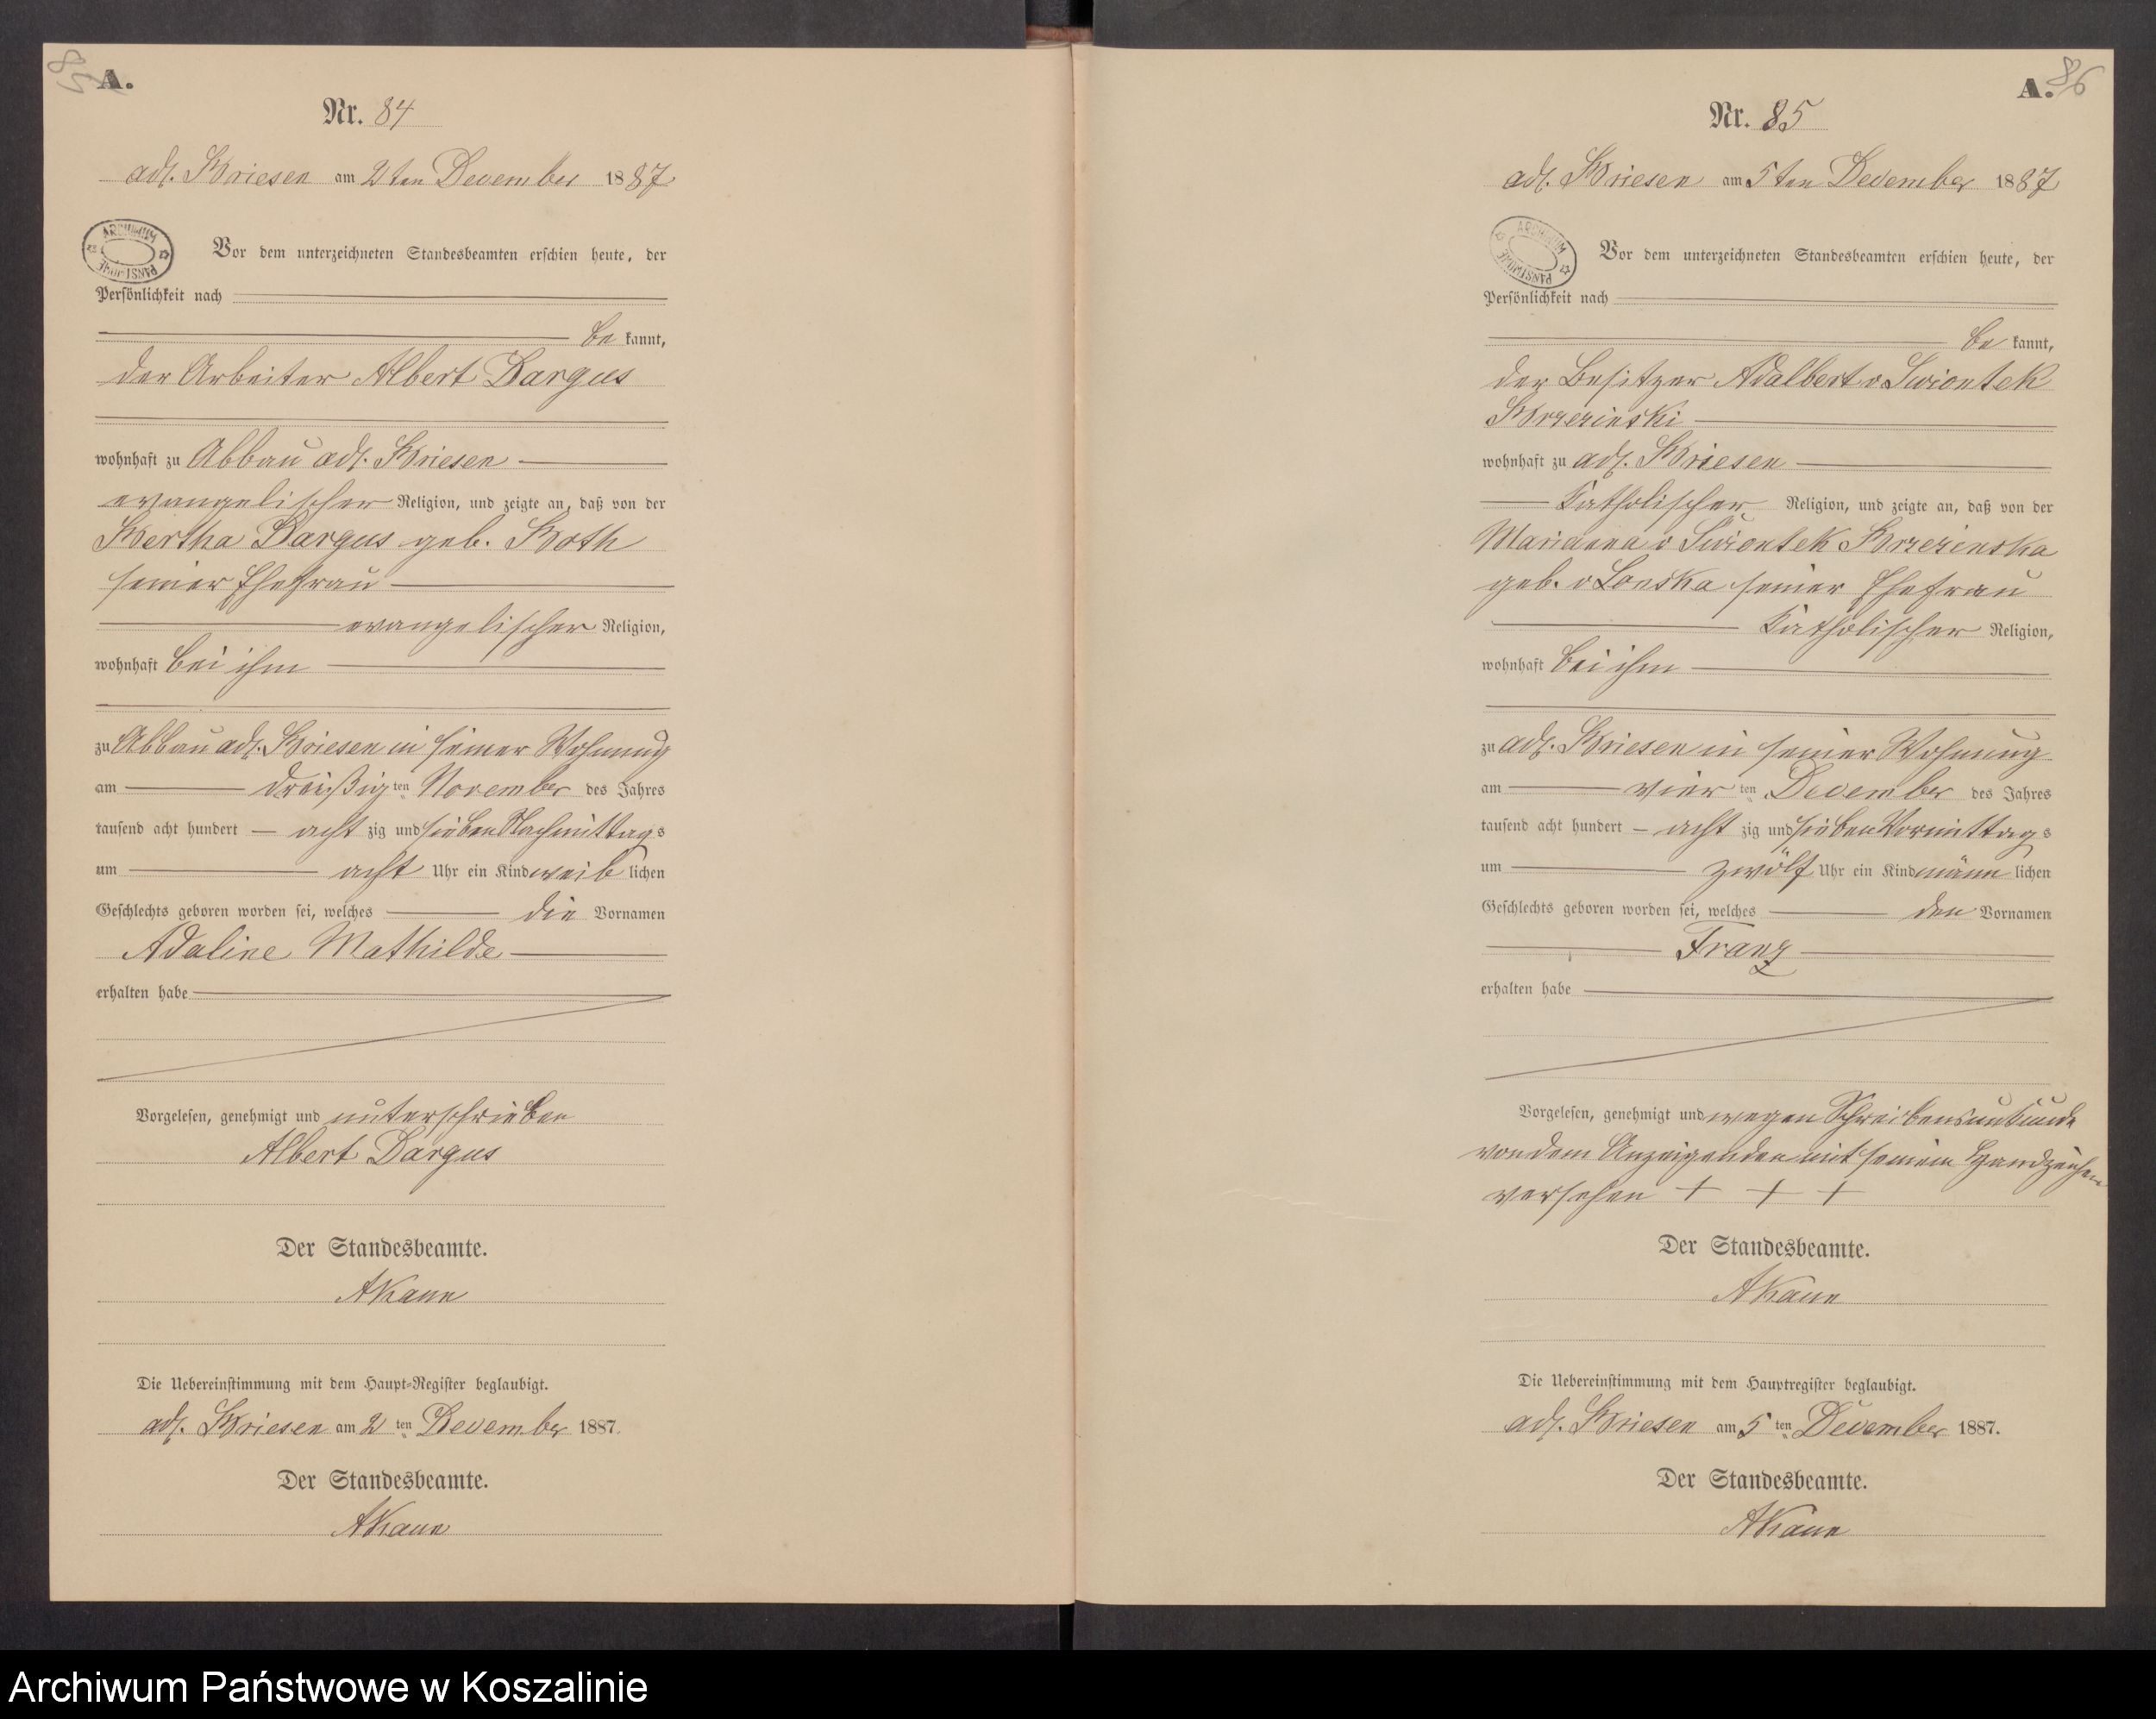 85
A.
Nr. 84
adl. Briesen am 2ten Dezember 1887
ARCHIWUM PAŃSTWOWE
Vor dem unterzeichneten Standesbeamten erschien heute, der
Persönlichkeit nach
be kannt,
der Arbeiter Albert Dargus
wohnhaft zu Abbau adl. Briesen
evangelischer Religion, und zeigte an, daß von der
Bertha Dargus geb. Both
seiner Ehefrau
evangelischer Religion,
wohnhaft bei ihm
zu Abbau adl. Briesen in seiner Wohnung
am dreißig ten November des Jahres
tausend acht hundert acht zig und sieben Nachmittags
um acht Uhr ein Kind weib lichen
Geschlechts geboren worden sei, welches die Vornamen
Adaline Mathilde
erhalten habe
Vorgelesen, genehmigt und unterschrieben
Albert Dargus
Der Standesbeamte.
AKaun
Die Uebereinstimmung mit dem Haupt-Register beglaubigt.
adl. Briesen am 2 ten Dezember 1887.
Der Standesbeamte.
AKaun
A. 86
Nr. 85
adl. Briesen am 5ten Dezember 1887
ARCHIWUM PAŃSTWOWE
Vor dem unterzeichneten Standesbeamten erschien heute, der
Persönlichkeit nach
be kannt,
der Besitzer Adalbert v Swiontek
Brzezinski
wohnhaft zu adl. Briesen
Katholischer Religion, und zeigte an, daß von der
Marianna v Swiontek Brzezinska
geb. v Lonska seiner Ehefrau
Katholischer Religion,
wohnhaft bei ihm
zu adl. Briesen in seiner Wohnung
am vier ten Dezember des Jahres
tausend acht hundert acht zig und sieben Vormittags
um zwölf Uhr ein Kind männ lichen
Geschlechts geboren worden sei, welches den Vornamen
Franz
erhalten habe
Vorgelesen, genehmigt und wegen Schreibensunkunde
von dem Anzeigenden mit seinem Handzeichen
versehen + + +
Der Standesbeamte.
AKaun
Die Uebereinstimmung mit dem Hauptregister beglaubigt.
adl. Briesen am 5 ten Dezember 1887.
Der Standesbeamte.
AKaun
Archiwum Państwowe w Koszalinie